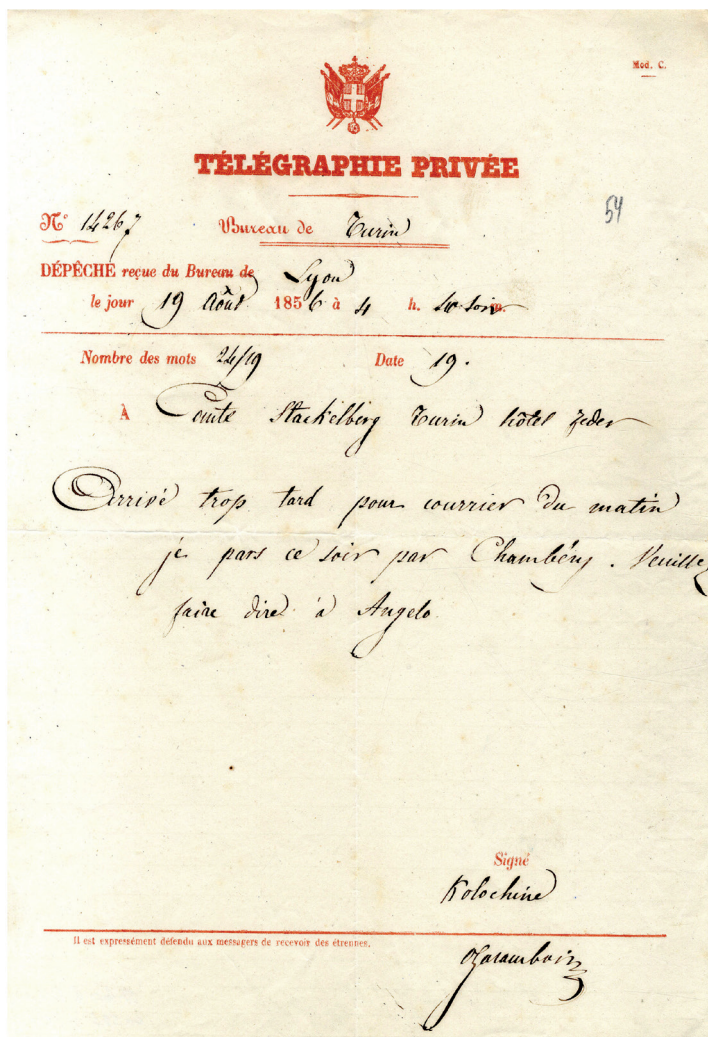 Mod. C.
TÉLÉGRAPHIE PRIVÉE
54
N° 14267 Bureau de Turin
DÉPÊCHE reçue du Bureau de Lyon
le jour 19 Août 1856 à 4 h. soir m.
Nombre des mots 24/19 Date 19.
À Comte Stackelberg Turin hôtel Feder
Arrivé trop tard pour courrier du matin
je pars ce soir par Chambéry. Veuillez
faire dire à Angelo
Signé
Kolochine
Il est expressément défendu aux messagers de recevoir des étrennes.